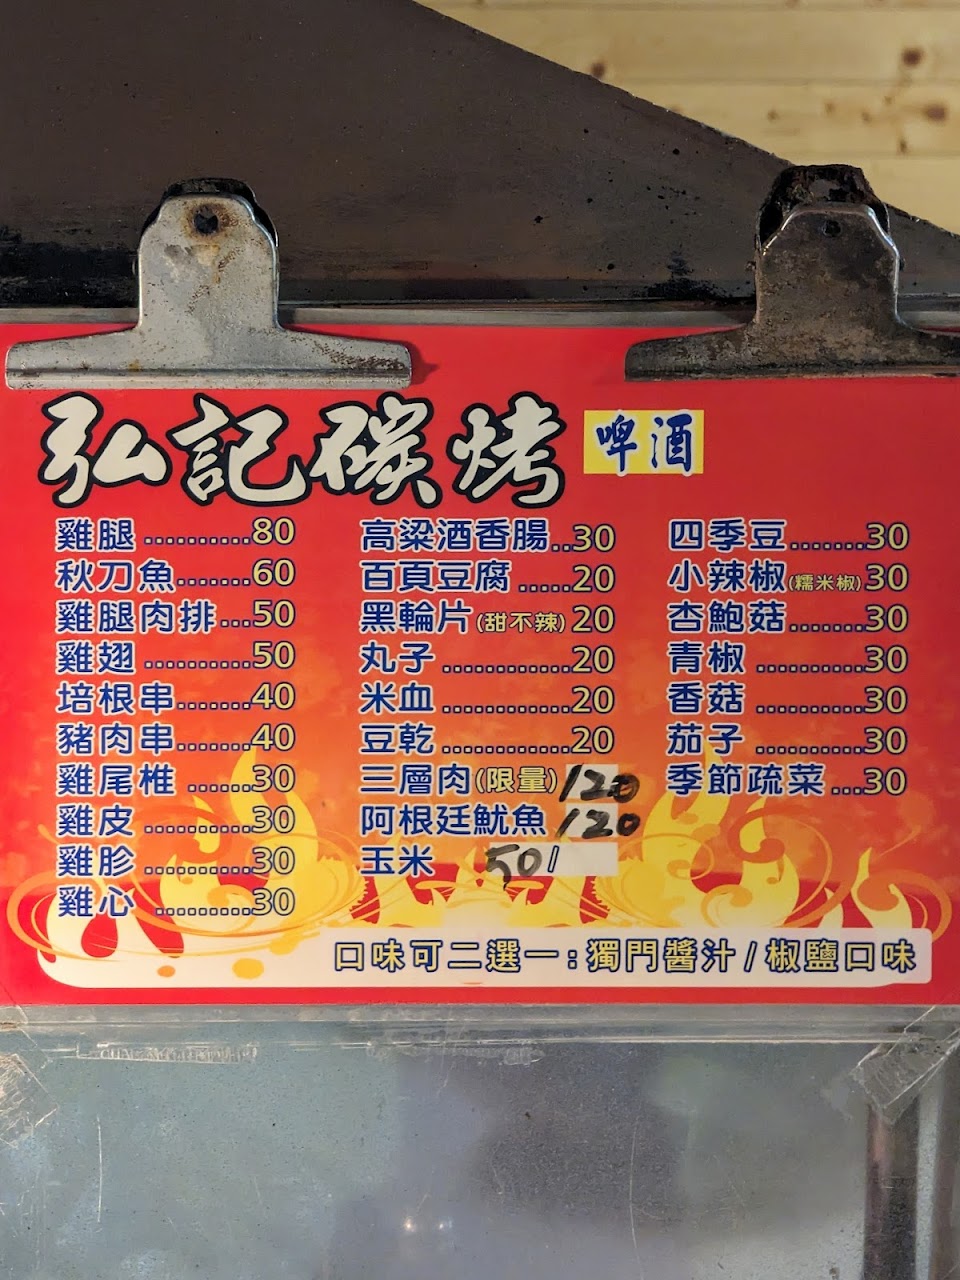 弘記碳烤 啤酒
雞腿..........80
秋刀魚.......60
雞腿肉排...50
雞翅..........50
培根串.......40
豬肉串.......40
雞尾椎......30
雞皮..........30
雞胗..........30
雞心.........30
高粱酒香腸..30
百頁豆腐.....20
黑輪片(甜不辣)20
丸子............20
米血............20
豆乾............20
三層肉(限量)120
阿根廷魷魚120
玉米 50/
四季豆.......30
小辣椒(糯米椒)30
杏鮑菇.......30
青椒..........30
香菇..........30
茄子..........30
季節疏菜...30
口味可二選一:獨門醬汁/椒鹽口味